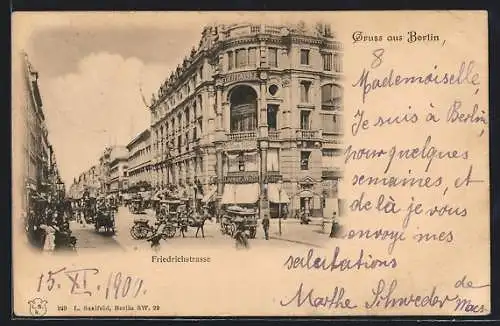 Gruss aus Berlin,
8
Mademoiselle,
Je suis à Berlin,
pourquelques
semaines, et
de là je vous
envoye mes
salutations
de
Marthe Schweder
Friedrichstrasse
15. XI. 1901.
249 L. Saalfeld, Berlin SW. 29